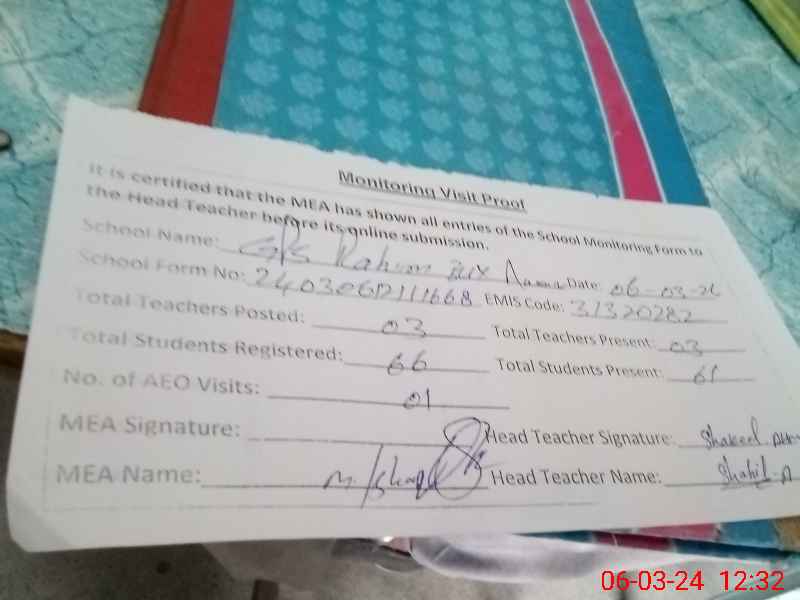 Monitoring Visit Proof
It is certified that the MEA has shown all entries of the School Monitoring Form to
the Head Teacher before its online submission.
School Name: GPS Rahim Bux Date: 06-03-24
School Form No: EMIS Code: 31320282
Total Teachers Posted: 03 Total Teachers Present: 03
Total Students Registered: 66 Total Students Present: 61
No. of AEO Visits: 01
MEA Signature: Head Teacher Signature: Shakeel
MEA Name: M. Ishaq Head Teacher Name:
06-03-24 12:32